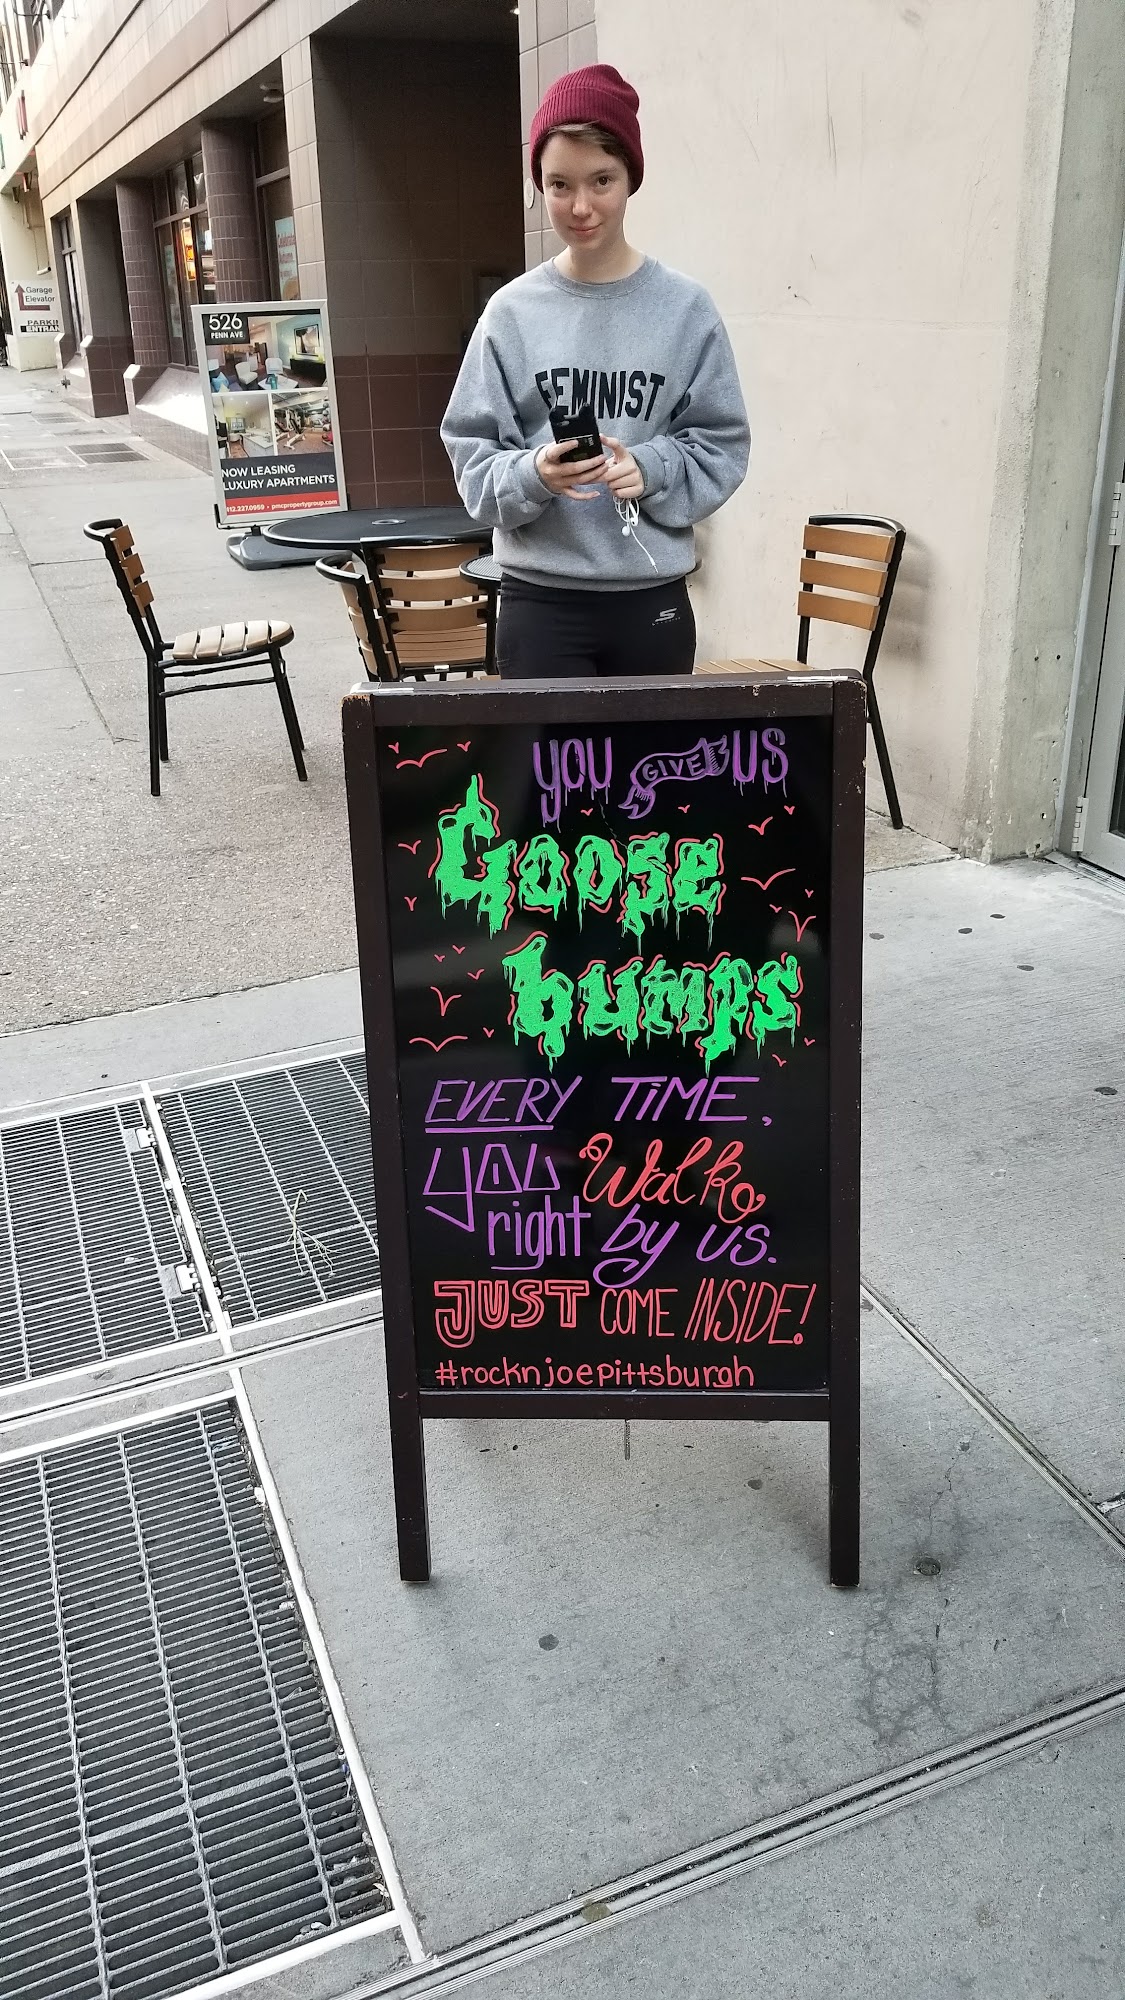 Garage
Elevator
PARKI
ENTRAN
526
PENN AVE
NOW LEASING
LUXURY APARTMENTS
412.227.0959 • pmcpropertygroup.com
FEMINIST
S
YOU GIVE US
Goose
bumps
EVERY TIME,
YOU Walk
right by us.
JUST COME INSIDE!
#rocknjoepittsburgh